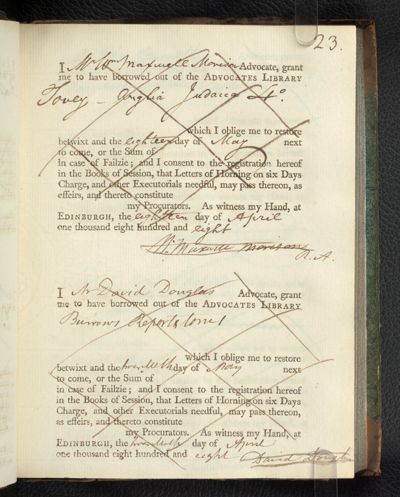 23.
I Mr Wm Maxwell Morison Advocate, grant
me to have borrowed out of the ADVOCATES LIBRARY
Tovey - Anglia Judaica 4o.
which I oblige me to restore
betwixt and the eighteen day of May next
to come, or the Sum of
in case of Failzie; and I consent to the registration hereof
in the Books of Session, that Letters of Horning on six Days
Charge, and other Executorials needful, may pass thereon, as
effeirs, and thereto constitute
my Procurators. As witness my Hand, at
EDINBURGH, the eighteen day of April
one thousand eight hundred and eight
Wm Maxwell Morison
I Mr David Douglas Advocate, grant
me to have borrowed out of the ADVOCATES LIBRARY
Burrows Reports tom 1
which I oblige me to restore
betwixt and the twentieth day of May next
to come, or the Sum of
in case of Failzie; and I consent to the registration hereof
in the Books of Session, that Letters of Horning on six Days
Charge, and other Executorials needful, may pass thereon,
as effeirs, and thereto constitute
my Procurators. As witness my Hand, at
EDINBURGH, the twentieth day of April
one thousand eight hundred and eight
David Douglas